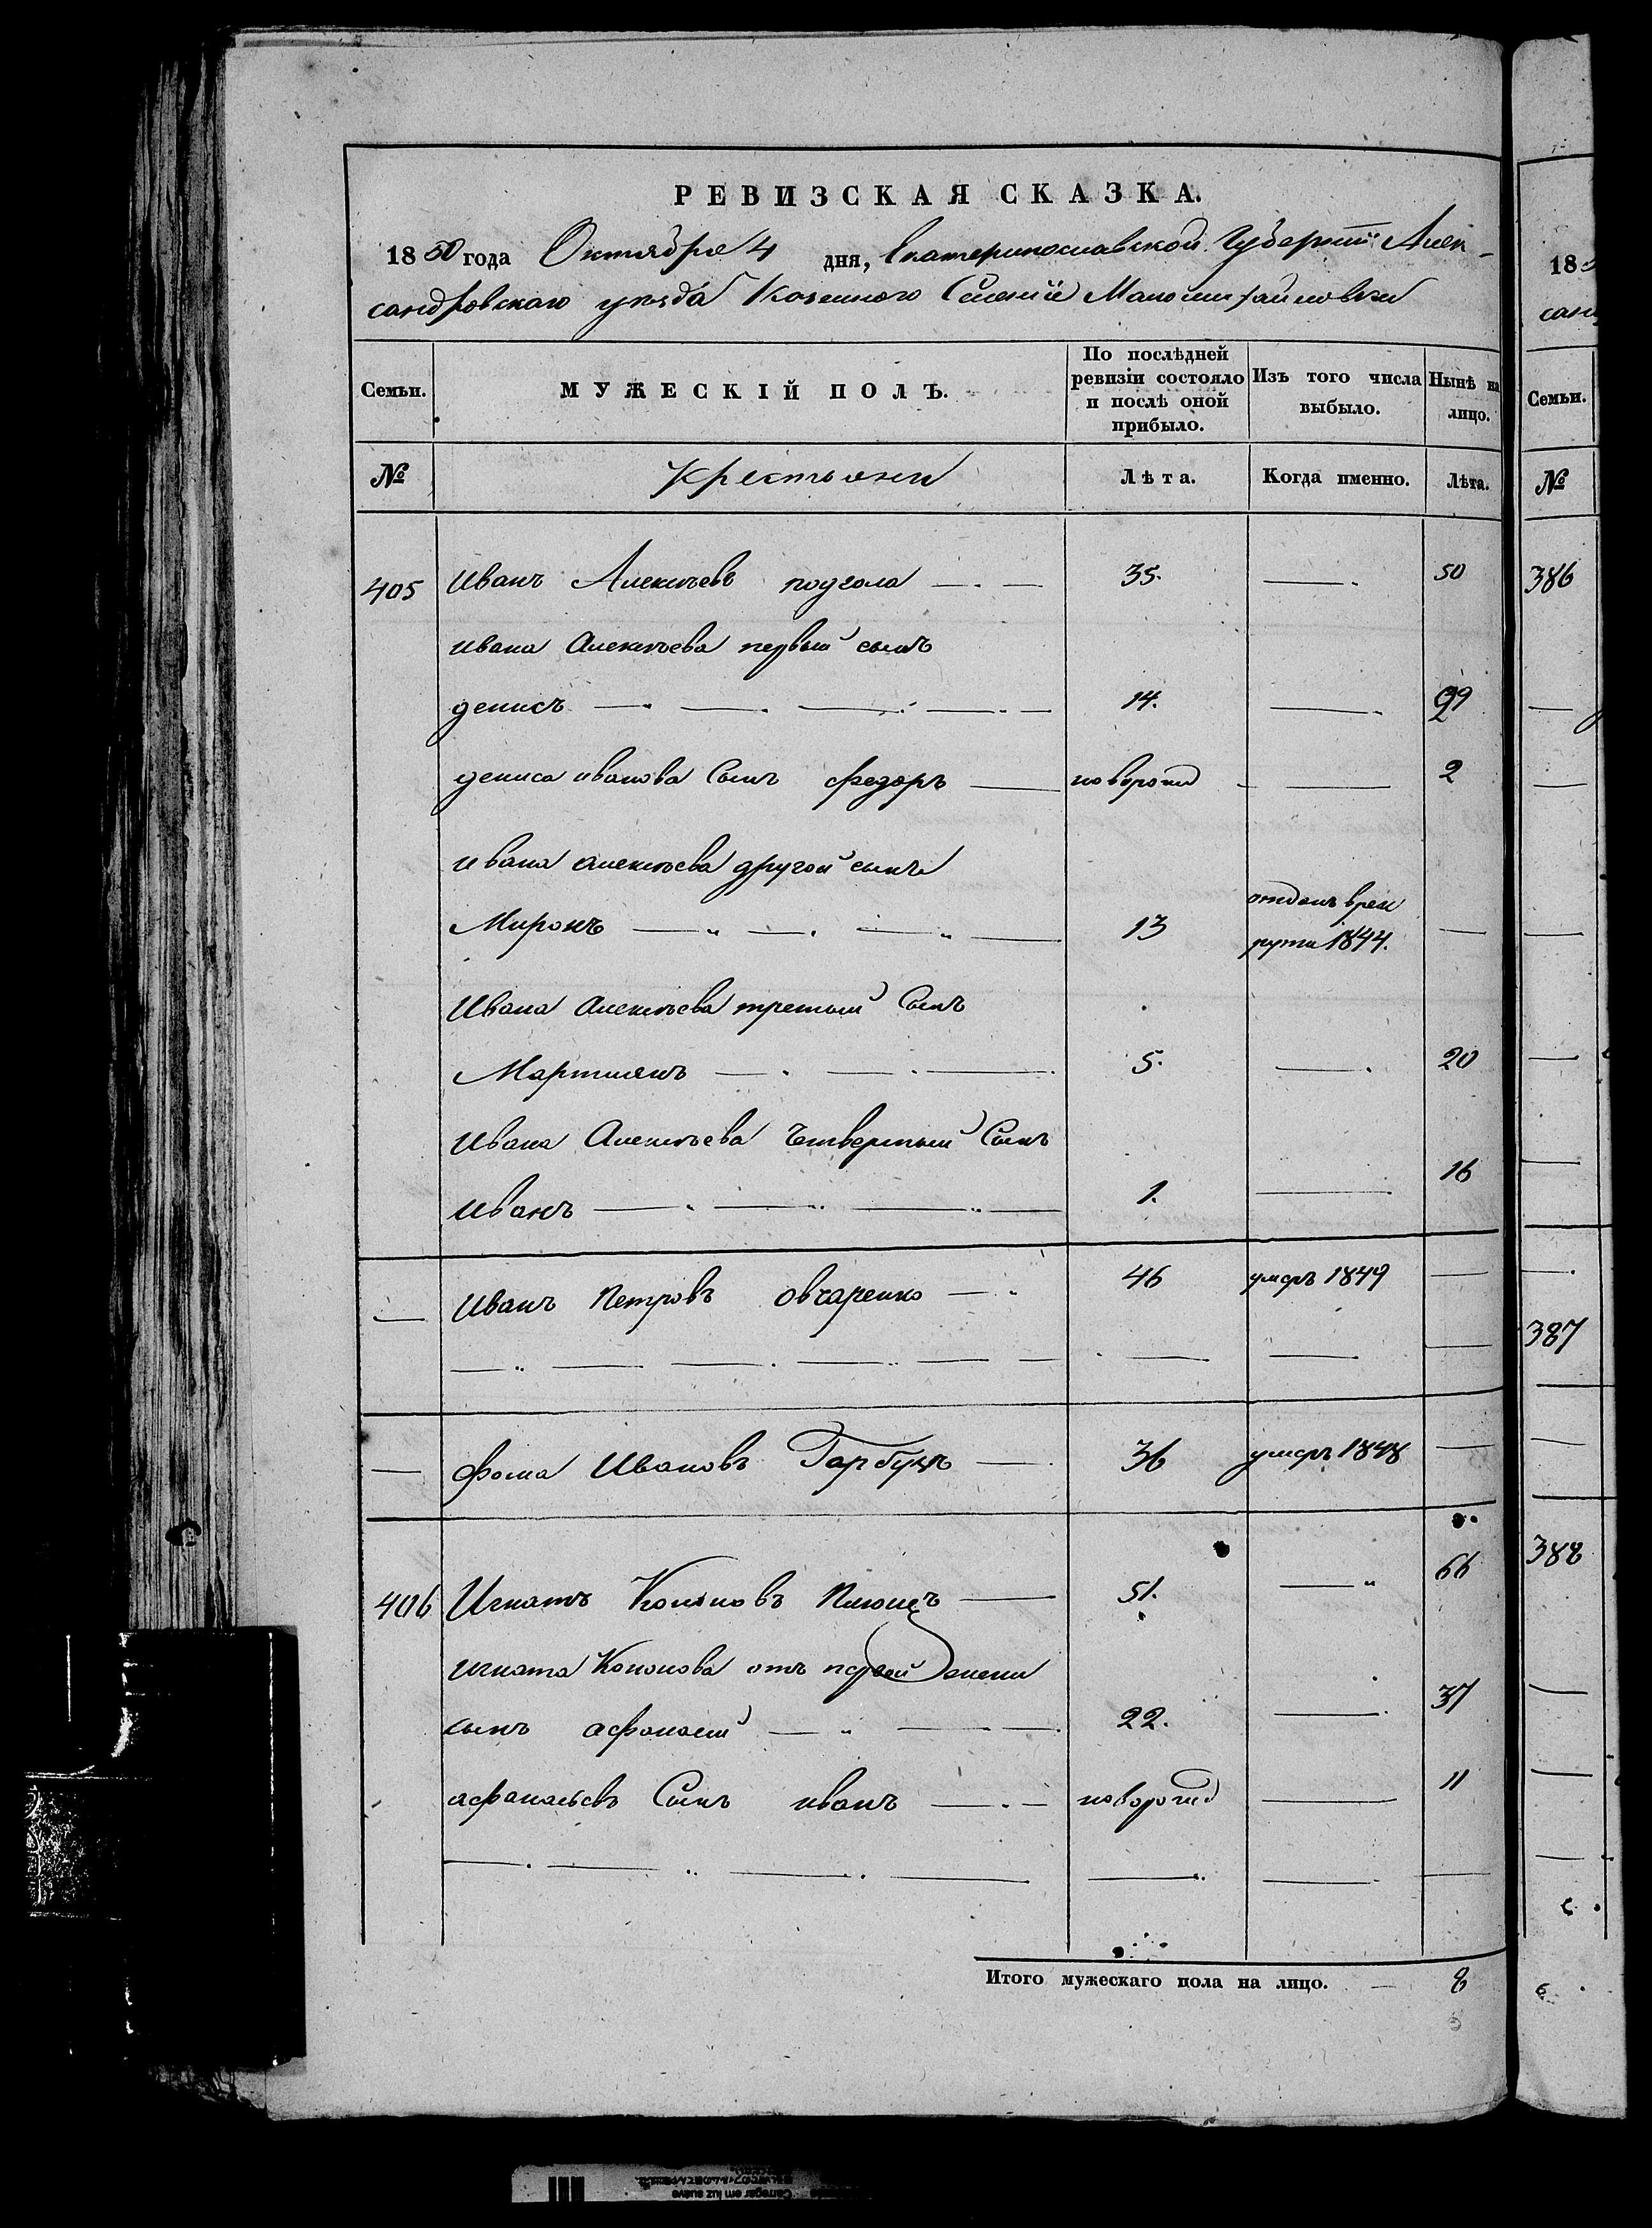 РЕВИЗСКАЯ СКАЗКА.
1850 года Октября 4 дня, Екатеринославской Губернiи Алек-
сандровскаго уезда Казенного Селенiе Маломихайловки
Семьи.
МУЖЕСКІЙ ПОЛЪ.
По послѣдней ревизіи состояло и послѣ оной прибыло.
Изъ того числа выбыло.
Нынѣ на лицо.
№
Крестьяни
Лѣта.
Когда именно.
Лѣта.
405 Иванъ Алексѣевъ 35. 50
Ивана Алексѣева первый сынъ
денисъ 14. 29
дениса иванова Сынъ федоръ новорожд 2
Ивана алексѣева другой сынъ
Миронъ 13 отданъ врек
рути 1844.
Ивана Алексѣева третьий Сынъ
Мартинъ 5. 20
Ивана Алексѣева Четвертый Сынъ
Иванъ 1. 16
Иванъ Петровъ овчаренко 46 умеръ 1849
фома Ивановъ Гарбузъ 36 умеръ 1848
406 Игнатъ Кононовъ 51. 66
Игната Кононова отъ первой жены
сынъ афонасий 22. 37
афанасьевъ Сынъ иванъ новорожд 11
Итого мужескаго пола на лицо. 8
18
сан
Семьи.
№
386
387
388
Carregar em luz suave